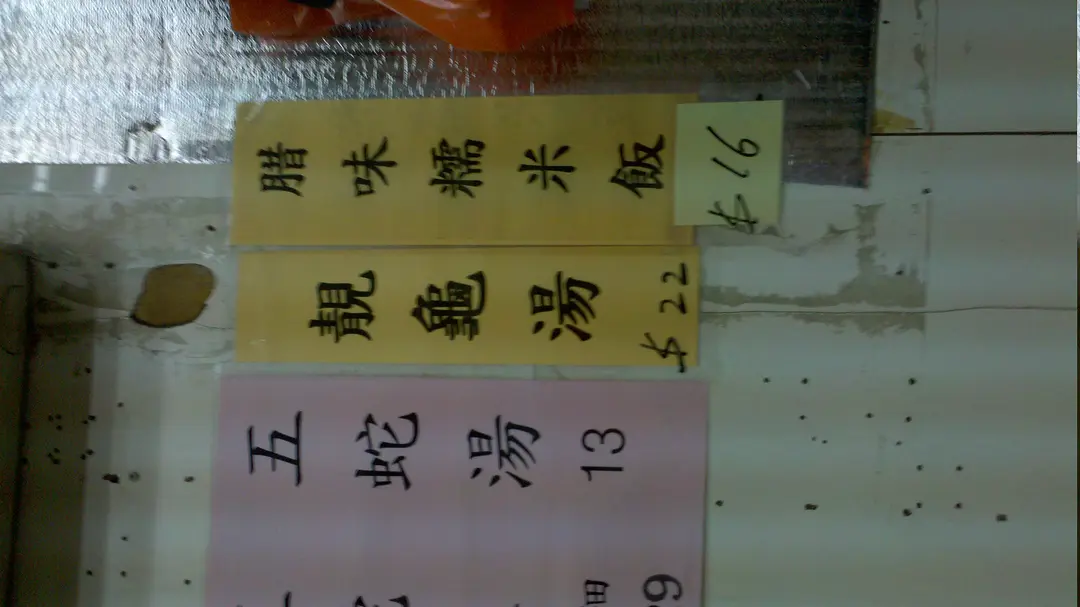 腊味糯米飯 $16
靚龜湯 $22
五蛇湯 13